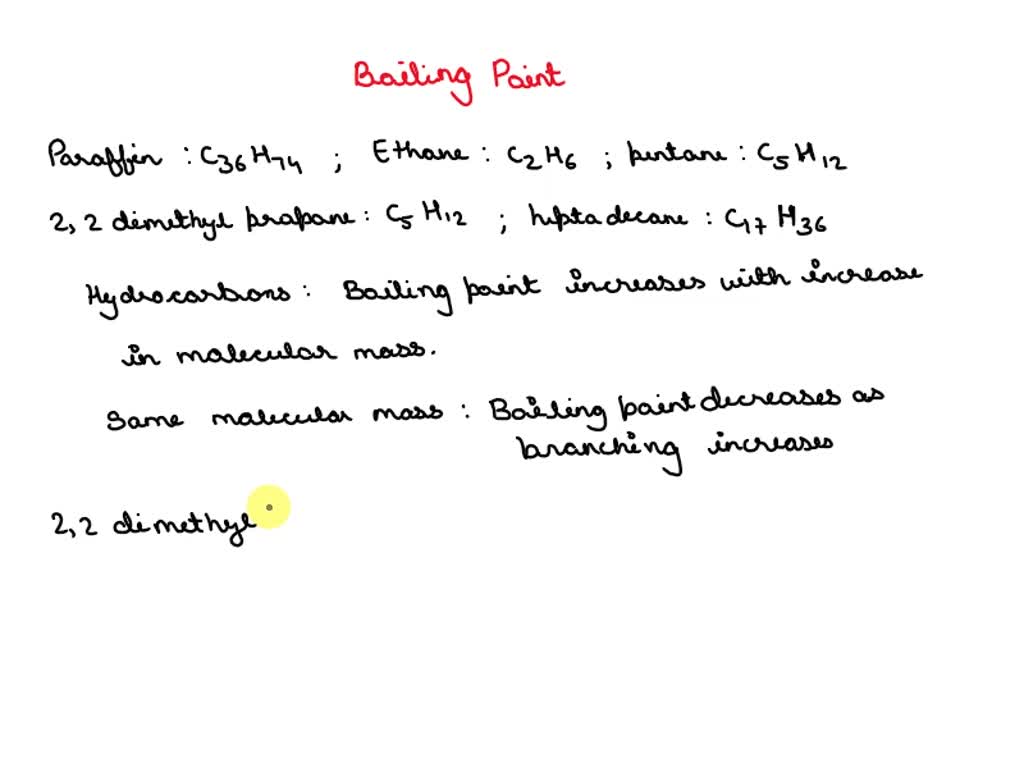 Boiling Point
Paraffin : C₃₆H₇₄ ; Ethane : C₂H₆ ; pentane : C₅H₁₂
2,2 dimethyl propane : C₅H₁₂ ; heptadecane : C₁₇H₃₆
Hydrocarbons : Boiling point increases with increase
in molecular mass.
Same molecular mass : Boiling point decreases as
branching increases
2,2 dimethyl